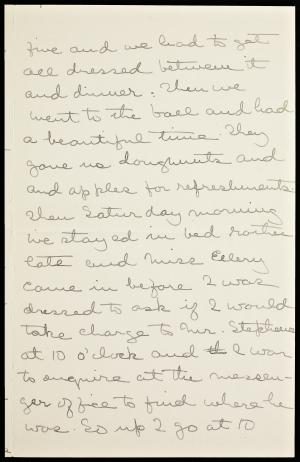 five and we had to get
all dressed between it
and dinner. Then we
went to the ball and had
a beautiful time. They
gave us doughnuts and
and apples for refreshments.
Then Saturday morning
we stayed in bed rather
late and Miss Ellery
came in before I was
dressed to ask if I would
take charge to Mr. Stephens
at 10 o'clock and I was
to enquire at the messen-
ger office to find where he
was. So up I go at 10